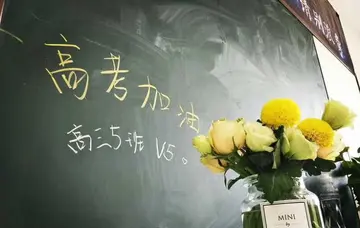 高考加油
高三5班 V5。
MINI